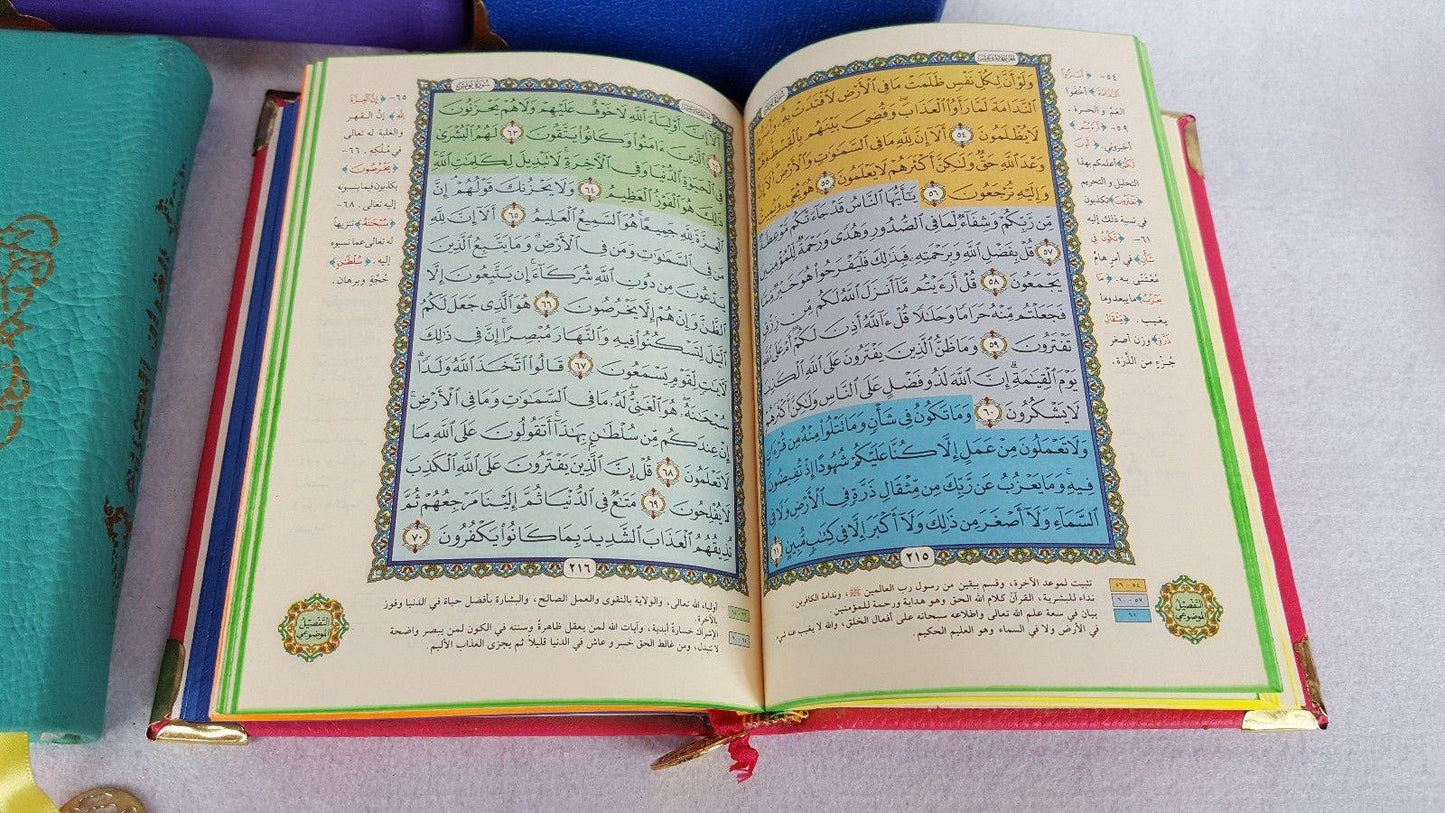 وَلَوْ أَنَّ لِكُلِّ نَفْسٍ ظَلَمَتْ مَا فِي ٱلْأَرْضِ لَٱفْتَدَتْ بِهِۦ وَأَسَرُّوا۟
ٱلنَّدَامَةَ لَمَّا رَأَوُا۟ ٱلْعَذَابَ وَقُضِيَ بَيْنَهُم بِٱلْقِسْطِ وَهُمْ
لَا يُظْلَمُونَ ٥٤ أَلَآ إِنَّ لِلَّهِ مَا فِي ٱلسَّمَٰوَٰتِ وَٱلْأَرْضِ أَلَآ إِنَّ
وَعْدَ ٱللَّهِ حَقٌّ وَلَٰكِنَّ أَكْثَرَهُمْ لَا يَعْلَمُونَ ٥٥ هُوَ يُحْيِۦ وَيُمِيتُ
وَإِلَيْهِ تُرْجَعُونَ ٥٦ يَٰٓأَيُّهَا ٱلنَّاسُ قَدْ جَآءَتْكُم مَّوْعِظَةٌ
مِّن رَّبِّكُمْ وَشِفَآءٌ لِّمَا فِي ٱلصُّدُورِ وَهُدًى وَرَحْمَةٌ لِّلْمُؤْمِنِينَ
٥٧ قُلْ بِفَضْلِ ٱللَّهِ وَبِرَحْمَتِهِۦ فَبِذَٰلِكَ فَلْيَفْرَحُوا۟ هُوَ خَيْرٌ مِّمَّا
يَجْمَعُونَ ٥٨ قُلْ أَرَءَيْتُم مَّآ أَنزَلَ ٱللَّهُ لَكُم مِّن رِّزْقٍ
فَجَعَلْتُم مِّنْهُ حَرَامًا وَحَلَٰلًا قُلْ ءَآللَّهُ أَذِنَ لَكُمْ أَمْ عَلَى ٱللَّهِ
تَفْتَرُونَ ٥٩ وَمَا ظَنُّ ٱلَّذِينَ يَفْتَرُونَ عَلَى ٱللَّهِ ٱلْكَذِبَ
يَوْمَ ٱلْقِيَٰمَةِ إِنَّ ٱللَّهَ لَذُو فَضْلٍ عَلَى ٱلنَّاسِ وَلَٰكِنَّ أَكْثَرَهُمْ
لَا يَشْكُرُونَ ٦٠ وَمَا تَكُونُ فِي شَأْنٍ وَمَا تَتْلُوا۟ مِنْهُ مِن قُرْءَانٍ
وَلَا تَعْمَلُونَ مِنْ عَمَلٍ إِلَّا كُنَّا عَلَيْكُمْ شُهُودًا إِذْ تُفِيضُونَ
فِيهِ وَمَا يَعْزُبُ عَن رَّبِّكَ مِن مِّثْقَالِ ذَرَّةٍ فِي ٱلْأَرْضِ وَلَا فِي
ٱلسَّمَآءِ وَلَآ أَصْغَرَ مِن ذَٰلِكَ وَلَآ أَكْبَرَ إِلَّا فِي كِتَٰبٍ مُّبِينٍ ٦١
٢١٥
٥٤- ﴿أَسَرُّوا۟
ٱلنَّدَامَةَ﴾ أخفوا
الغم والحسرة.
٥٩- ﴿أَرَءَيْتُم﴾
أخبروني.
أعلمكم بهذا
التحليل والتحريم
﴿تَفْتَرُونَ﴾ تكذبون
في نسبة ذلك إليه
٦١- ﴿تَكُونُ فِي
شَأْنٍ﴾ في أمر هامٍّ
مُعْتنى به. ﴿مَا
يَعْزُبُ﴾ ما يبعد وما
يغيب. ﴿مِثْقَالِ
ذَرَّةٍ﴾ وزن أصغر
جُزءٍ من الذَّرة.
٥٤ - ٥٦ تثبيت لموعد الآخرة، وقسم بيقين من رسول رب العالمين ﷺ، وندامة الكافرين.
٥٧ - ٦٠ نداء للبشرية، القرآن كلام الله الحق وهو هداية ورحمة للمؤمنين.
٦١ بيان في سعة علم الله تعالى واطلاعه سبحانه على أفعال الخلق، والله لا يغيب عنه شيء
في الأرض ولا في السماء وهو العليم الحكيم.
التفصيل
الموضوعي
سُورَةُ يُونُسَ
أَلَآ إِنَّ أَوْلِيَآءَ ٱللَّهِ لَا خَوْفٌ عَلَيْهِمْ وَلَا هُمْ يَحْزَنُونَ
٦٢ ٱلَّذِينَ ءَامَنُوا۟ وَكَانُوا۟ يَتَّقُونَ ٦٣ لَهُمُ ٱلْبُشْرَىٰ
فِي ٱلْحَيَوٰةِ ٱلدُّنْيَا وَفِي ٱلْءَاخِرَةِ لَا تَبْدِيلَ لِكَلِمَٰتِ ٱللَّهِ
ذَٰلِكَ هُوَ ٱلْفَوْزُ ٱلْعَظِيمُ ٦٤ وَلَا يَحْزُنكَ قَوْلُهُمْ إِنَّ
ٱلْعِزَّةَ لِلَّهِ جَمِيعًا هُوَ ٱلسَّمِيعُ ٱلْعَلِيمُ ٦٥ أَلَآ إِنَّ لِلَّهِ
مَن فِي ٱلسَّمَٰوَٰتِ وَمَن فِي ٱلْأَرْضِ وَمَا يَتَّبِعُ ٱلَّذِينَ
يَدْعُونَ مِن دُونِ ٱللَّهِ شُرَكَآءَ إِن يَتَّبِعُونَ إِلَّا
ٱلظَّنَّ وَإِنْ هُمْ إِلَّا يَخْرُصُونَ ٦٦ هُوَ ٱلَّذِي جَعَلَ لَكُمُ
ٱلَّيْلَ لِتَسْكُنُوا۟ فِيهِ وَٱلنَّهَارَ مُبْصِرًا إِنَّ فِي ذَٰلِكَ
لَءَايَٰتٍ لِّقَوْمٍ يَسْمَعُونَ ٦٧ قَالُوا۟ ٱتَّخَذَ ٱللَّهُ وَلَدًا
سُبْحَٰنَهُۥ هُوَ ٱلْغَنِيُّ لَهُۥ مَا فِي ٱلسَّمَٰوَٰتِ وَمَا فِي ٱلْأَرْضِ
إِنْ عِندَكُم مِّن سُلْطَٰنٍۭ بِهَٰذَآ أَتَقُولُونَ عَلَى ٱللَّهِ مَا
لَا تَعْلَمُونَ ٦٨ قُلْ إِنَّ ٱلَّذِينَ يَفْتَرُونَ عَلَى ٱللَّهِ ٱلْكَذِبَ
لَا يُفْلِحُونَ ٦٩ مَتَٰعٌ فِي ٱلدُّنْيَا ثُمَّ إِلَيْنَا مَرْجِعُهُمْ ثُمَّ
نُذِيقُهُمُ ٱلْعَذَابَ ٱلشَّدِيدَ بِمَا كَانُوا۟ يَكْفُرُونَ ٧٠
٢١٦
٦٥- ﴿إِنَّ ٱلْعِزَّةَ
لِلَّهِ﴾ إن القهر
والغلبة له تعالى
في مُلكه. ٦٦-
﴿يَخْرُصُونَ﴾
يكذبون فيما ينسبونه
إليه تعالى. ٦٨-
﴿سُبْحَٰنَهُ﴾ تنزيهاً
له تعالى عما نسبوه
إليه. ﴿سُلْطَٰنٍ﴾
حجّةٍ وبرهان.
أولياء الله تعالى، والولاية بالتقوى والعمل الصالح، والبشارة بأفضل حياة في الدنيا وفوز
بالآخرة.
الإشراك خسارة أبدية، وآيات الله لمن يعقل ظاهرة وسننه في الكون لمن يبصر واضحة
لا تتبدل، ومن غالط الحق خسر وعاش في الدنيا قليلاً ثم يجزى العذاب الأليم.
التفصيل
الموضوعي